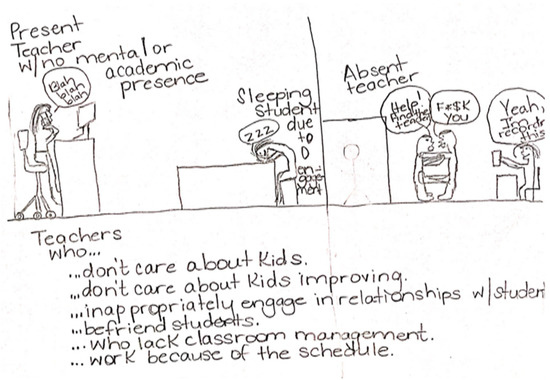 Present
Teacher
w/no mental or
academic
presence
Blah
blah
blah
Sleeping
student
due
to
0
en-
gage-
ment
zzz
Absent
teacher
Help!
Find the
teacher
F*$K
You
Yeah,
I'm
recordin
this
Teachers
who...
...don't care about kids.
...don't care about kids improving.
...inappropriately engage in relationships w/student
...befriend students.
...who lack classroom management.
...work because of the schedule.